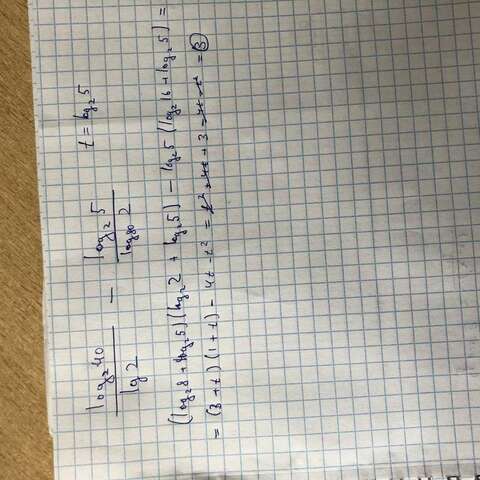 log₂40 / lg 2 − log₂5 / log₈₀2   t = log₂5
(log₂8 + log₂5)(log₂2 + log₂5) − log₂5 (log₂16 + log₂5) =
= (3 + t)(1 + t) − 4t − t² = t² + 4t + 3 − 4t − t² = 3